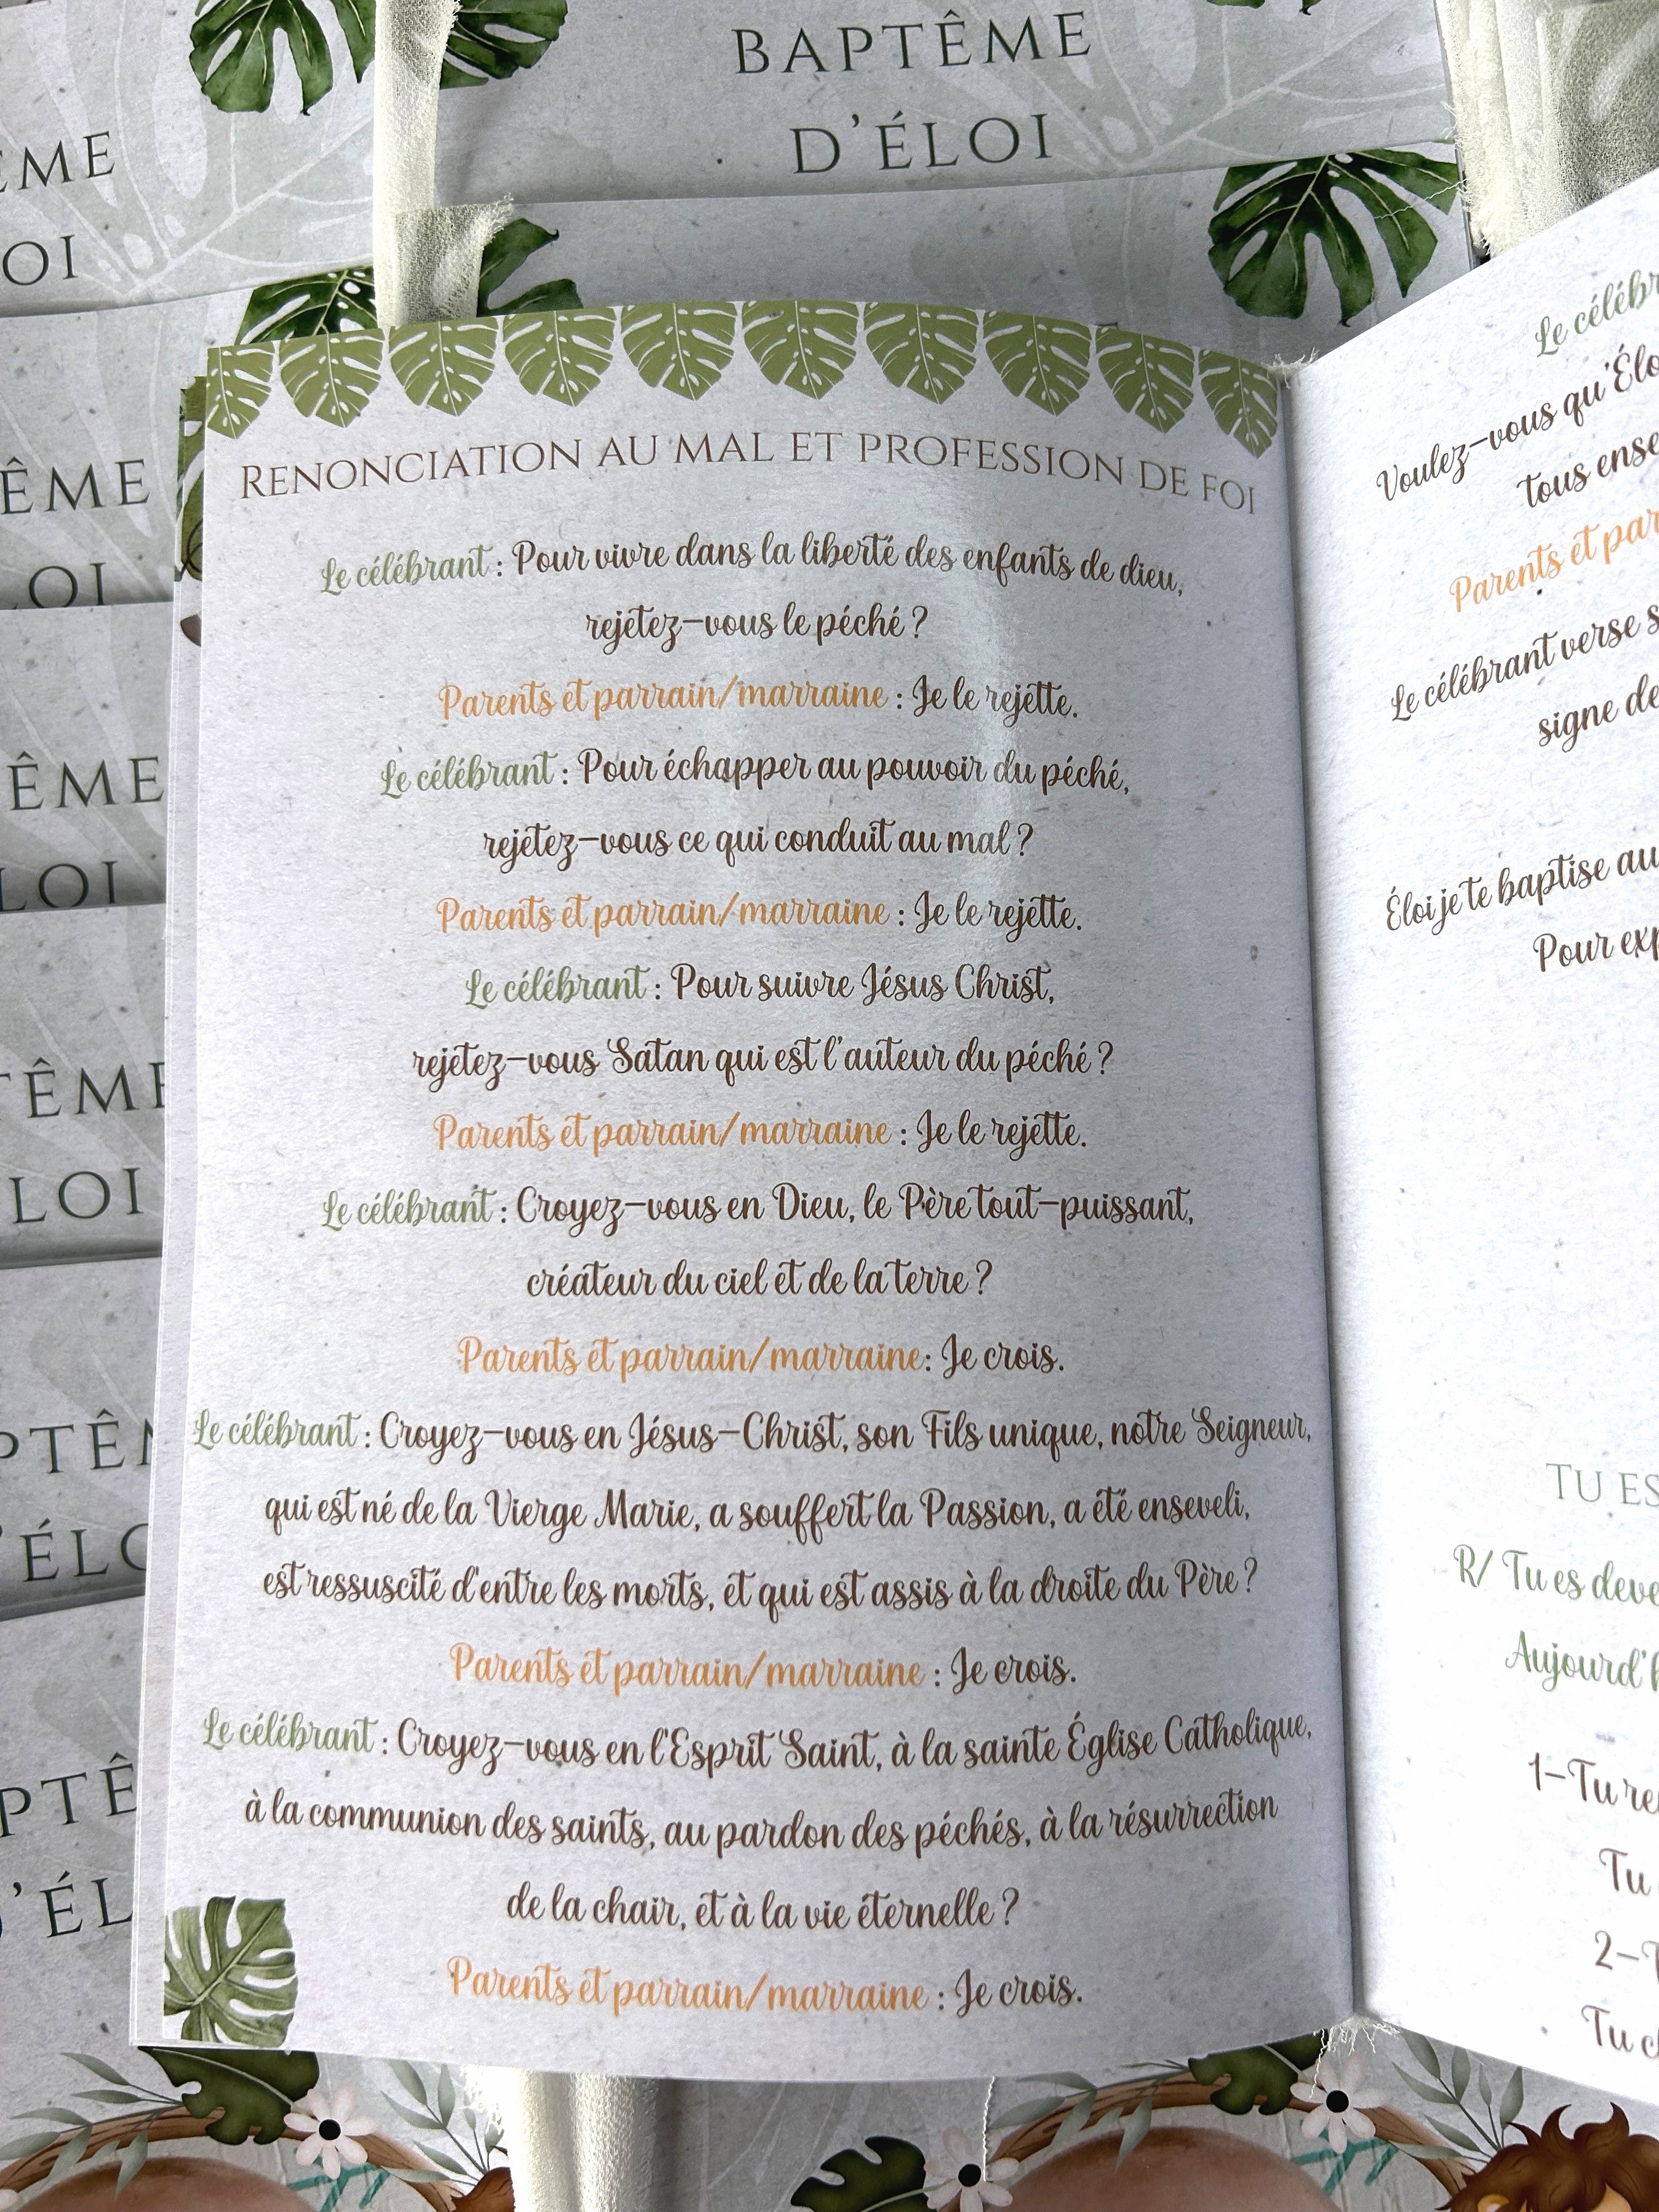 BAPTÊME
D'ÉLOI
RENONCIATION AU MAL ET PROFESSION DE FOI
Le célébrant : Pour vivre dans la liberté des enfants de dieu,
rejetez-vous le péché ?
Parents et parrain/marraine : Je le rejette.
Le célébrant : Pour échapper au pouvoir du péché,
rejetez-vous ce qui conduit au mal ?
Parents et parrain/marraine : Je le rejette.
Le célébrant : Pour suivre Jésus Christ,
rejetez-vous Satan qui est l'auteur du péché ?
Parents et parrain/marraine : Je le rejette.
Le célébrant : Croyez-vous en Dieu, le Père tout-puissant,
créateur du ciel et de la terre ?
Parents et parrain/marraine: Je crois.
Le célébrant : Croyez-vous en Jésus-Christ, son Fils unique, notre Seigneur,
qui est né de la Vierge Marie, a souffert la Passion, a été enseveli,
est ressuscité d'entre les morts, et qui est assis à la droite du Père ?
Parents et parrain/marraine : Je crois.
Le célébrant : Croyez-vous en l'Esprit Saint, à la sainte Église Catholique,
à la communion des saints, au pardon des péchés, à la résurrection
de la chair, et à la vie éternelle ?
Parents et parrain/marraine : Je crois.
Le
Voulez-vous
tous
Parents et
Le célébrant verse
signe
Éloi je te baptise au
Pour
TU ES
R/ Tu es
1-Tu
Tu
2-
Tu